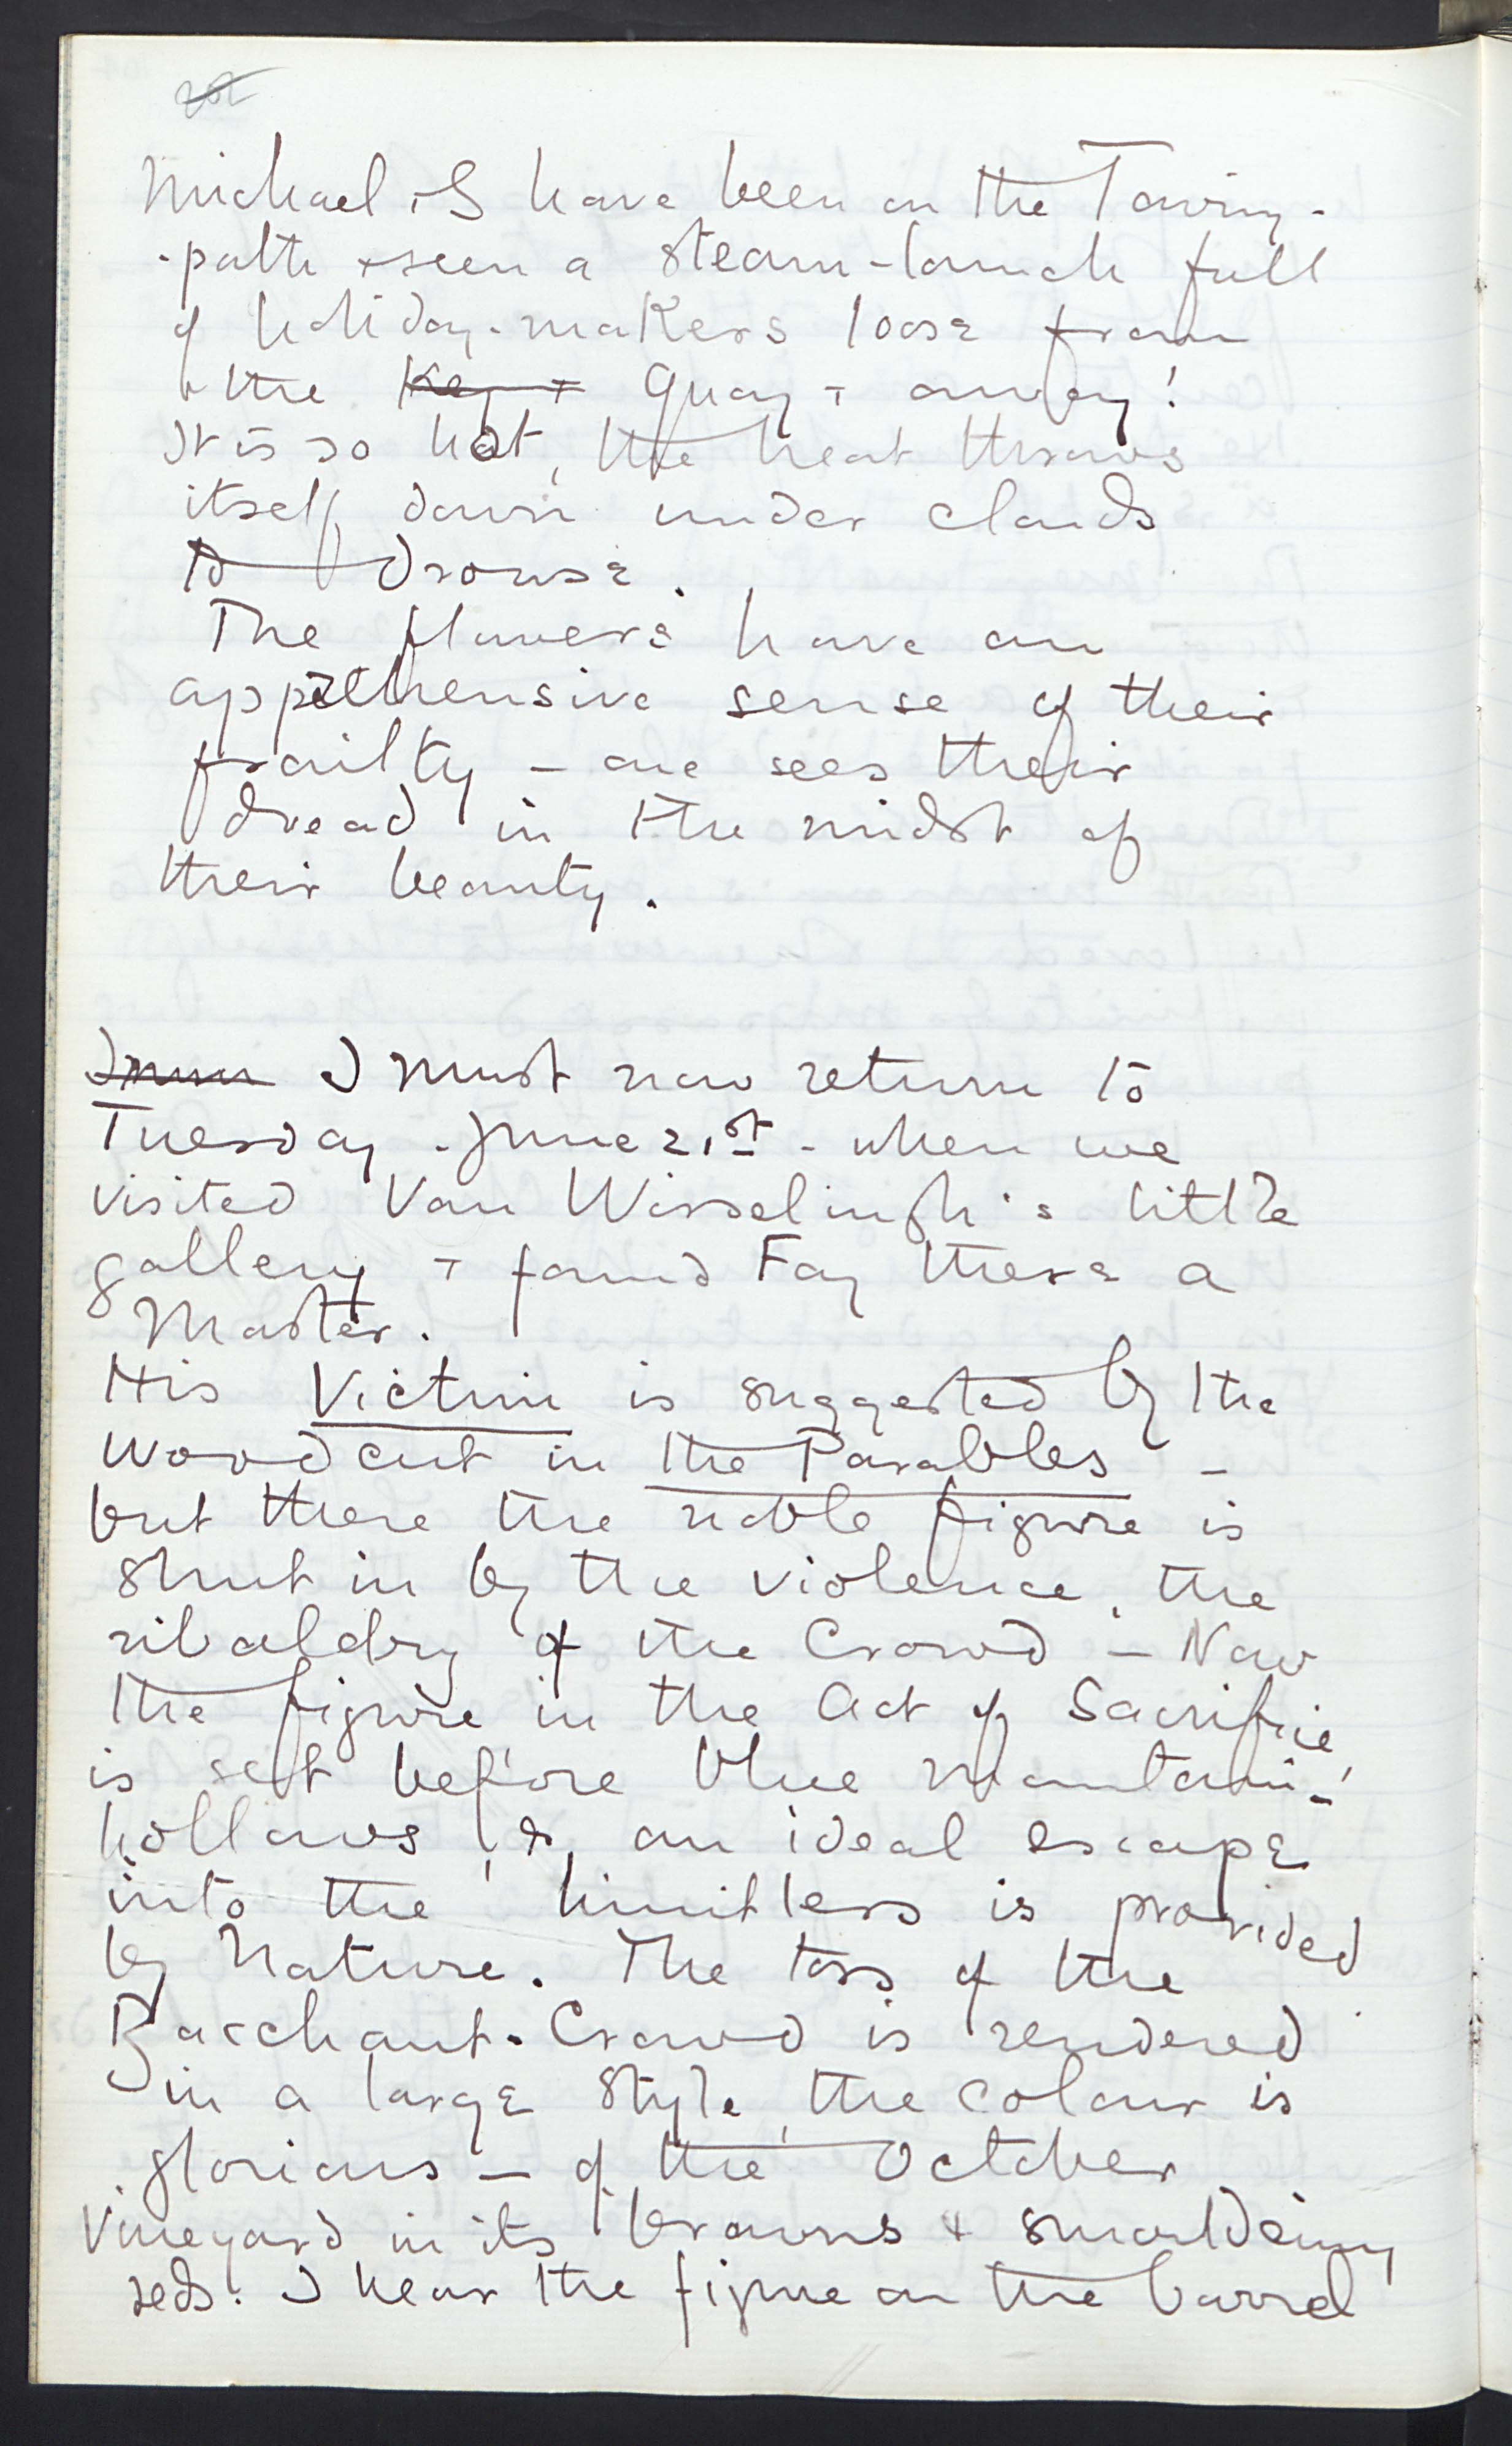 Michael & I have been on the Towing-
-path & seen a steam-launch full
of holiday-makers loose from
the Key & Quay & away!
It is so hot, the heat throws
itself down under clouds
to drowse.
The flowers have an
apprehensive sense of their
frailty – one sees their
dread in the midst of
their beauty.
I must now return to
Tuesday - June 21st - when we
visited Van Wisselingh's little
gallery & found Fay there a
Master.
His Victim is suggested by the
woodcut in the Parables –
but there the noble figure is
shut in by the violence, the
ribaldry of the Crowd – Now
the figure in the Act of Sacrifice
is set before blue mountain-
hollows, & an ideal escape
into the limitless is provided
by Nature. The toss of the
Bacchant-Crowd is rendered
in a large style, the colour is
glorious – of the October
Vineyard in its browns & smouldering
reds. I hear the figure on the barrel